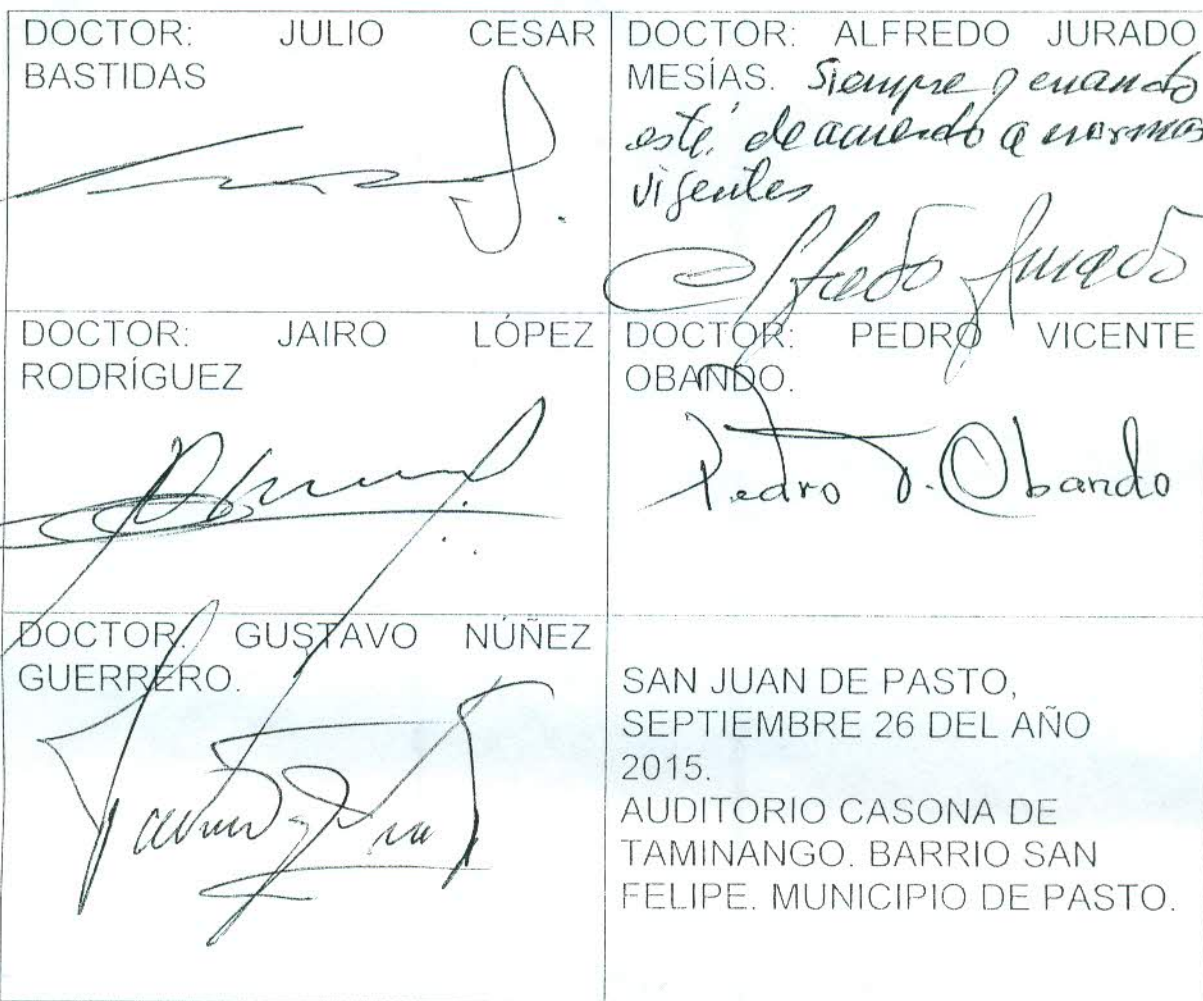 DOCTOR: JULIO CESAR
BASTIDAS
DOCTOR: ALFREDO JURADO
MESÍAS. Siempre y cuando
esté de acuerdo a normas
vigentes
Alfredo Jurado
DOCTOR: JAIRO LÓPEZ
RODRÍGUEZ
DOCTOR: PEDRO VICENTE
OBANDO.
Pedro V. Obando
DOCTOR. GUSTAVO NÚÑEZ
GUERRERO.
SAN JUAN DE PASTO,
SEPTIEMBRE 26 DEL AÑO
2015.
AUDITORIO CASONA DE
TAMINANGO. BARRIO SAN
FELIPE. MUNICIPIO DE PASTO.